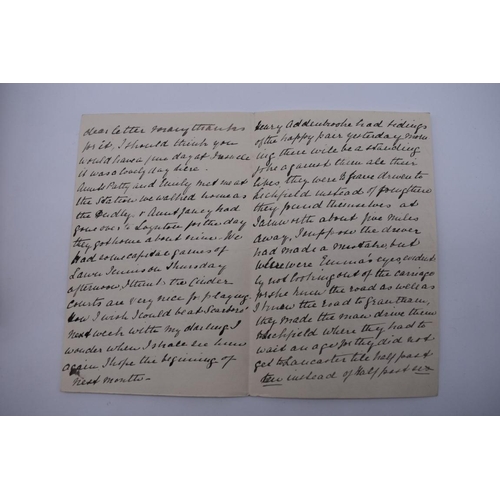 dear letter many thanks
for it, I should think you
would have a fine day at
it was a lovely day here.
Aunt Patty and Emily met us at
the Station we walked home as
the Aunt had
gone over to for the day
they got home about nine. We
had some capital games of
Lawn Tennis on Thursday
afternoon I think the Cinder
courts are very nice for playing
How I wish I could be at
next week with my darling I
wonder when I shall see him
again I hope the beginning of
next month—
Henry Addenbrooke had tidings
of the happy pair yesterday morn
ing, there will be a standing
joke against them all their
lives, they were to have driven to
Lichfield instead of
they found themselves at
Tamworth about five miles
away, I suppose the driver
had made a mistake, but
where were Emma's eyes
by not looking out of the carriage
for she knew the road as well as
I know the road to
they made the man drive them
to Lichfield where they had to
wait an age for they did not
get to Lancaster till half past
ten instead of half past six